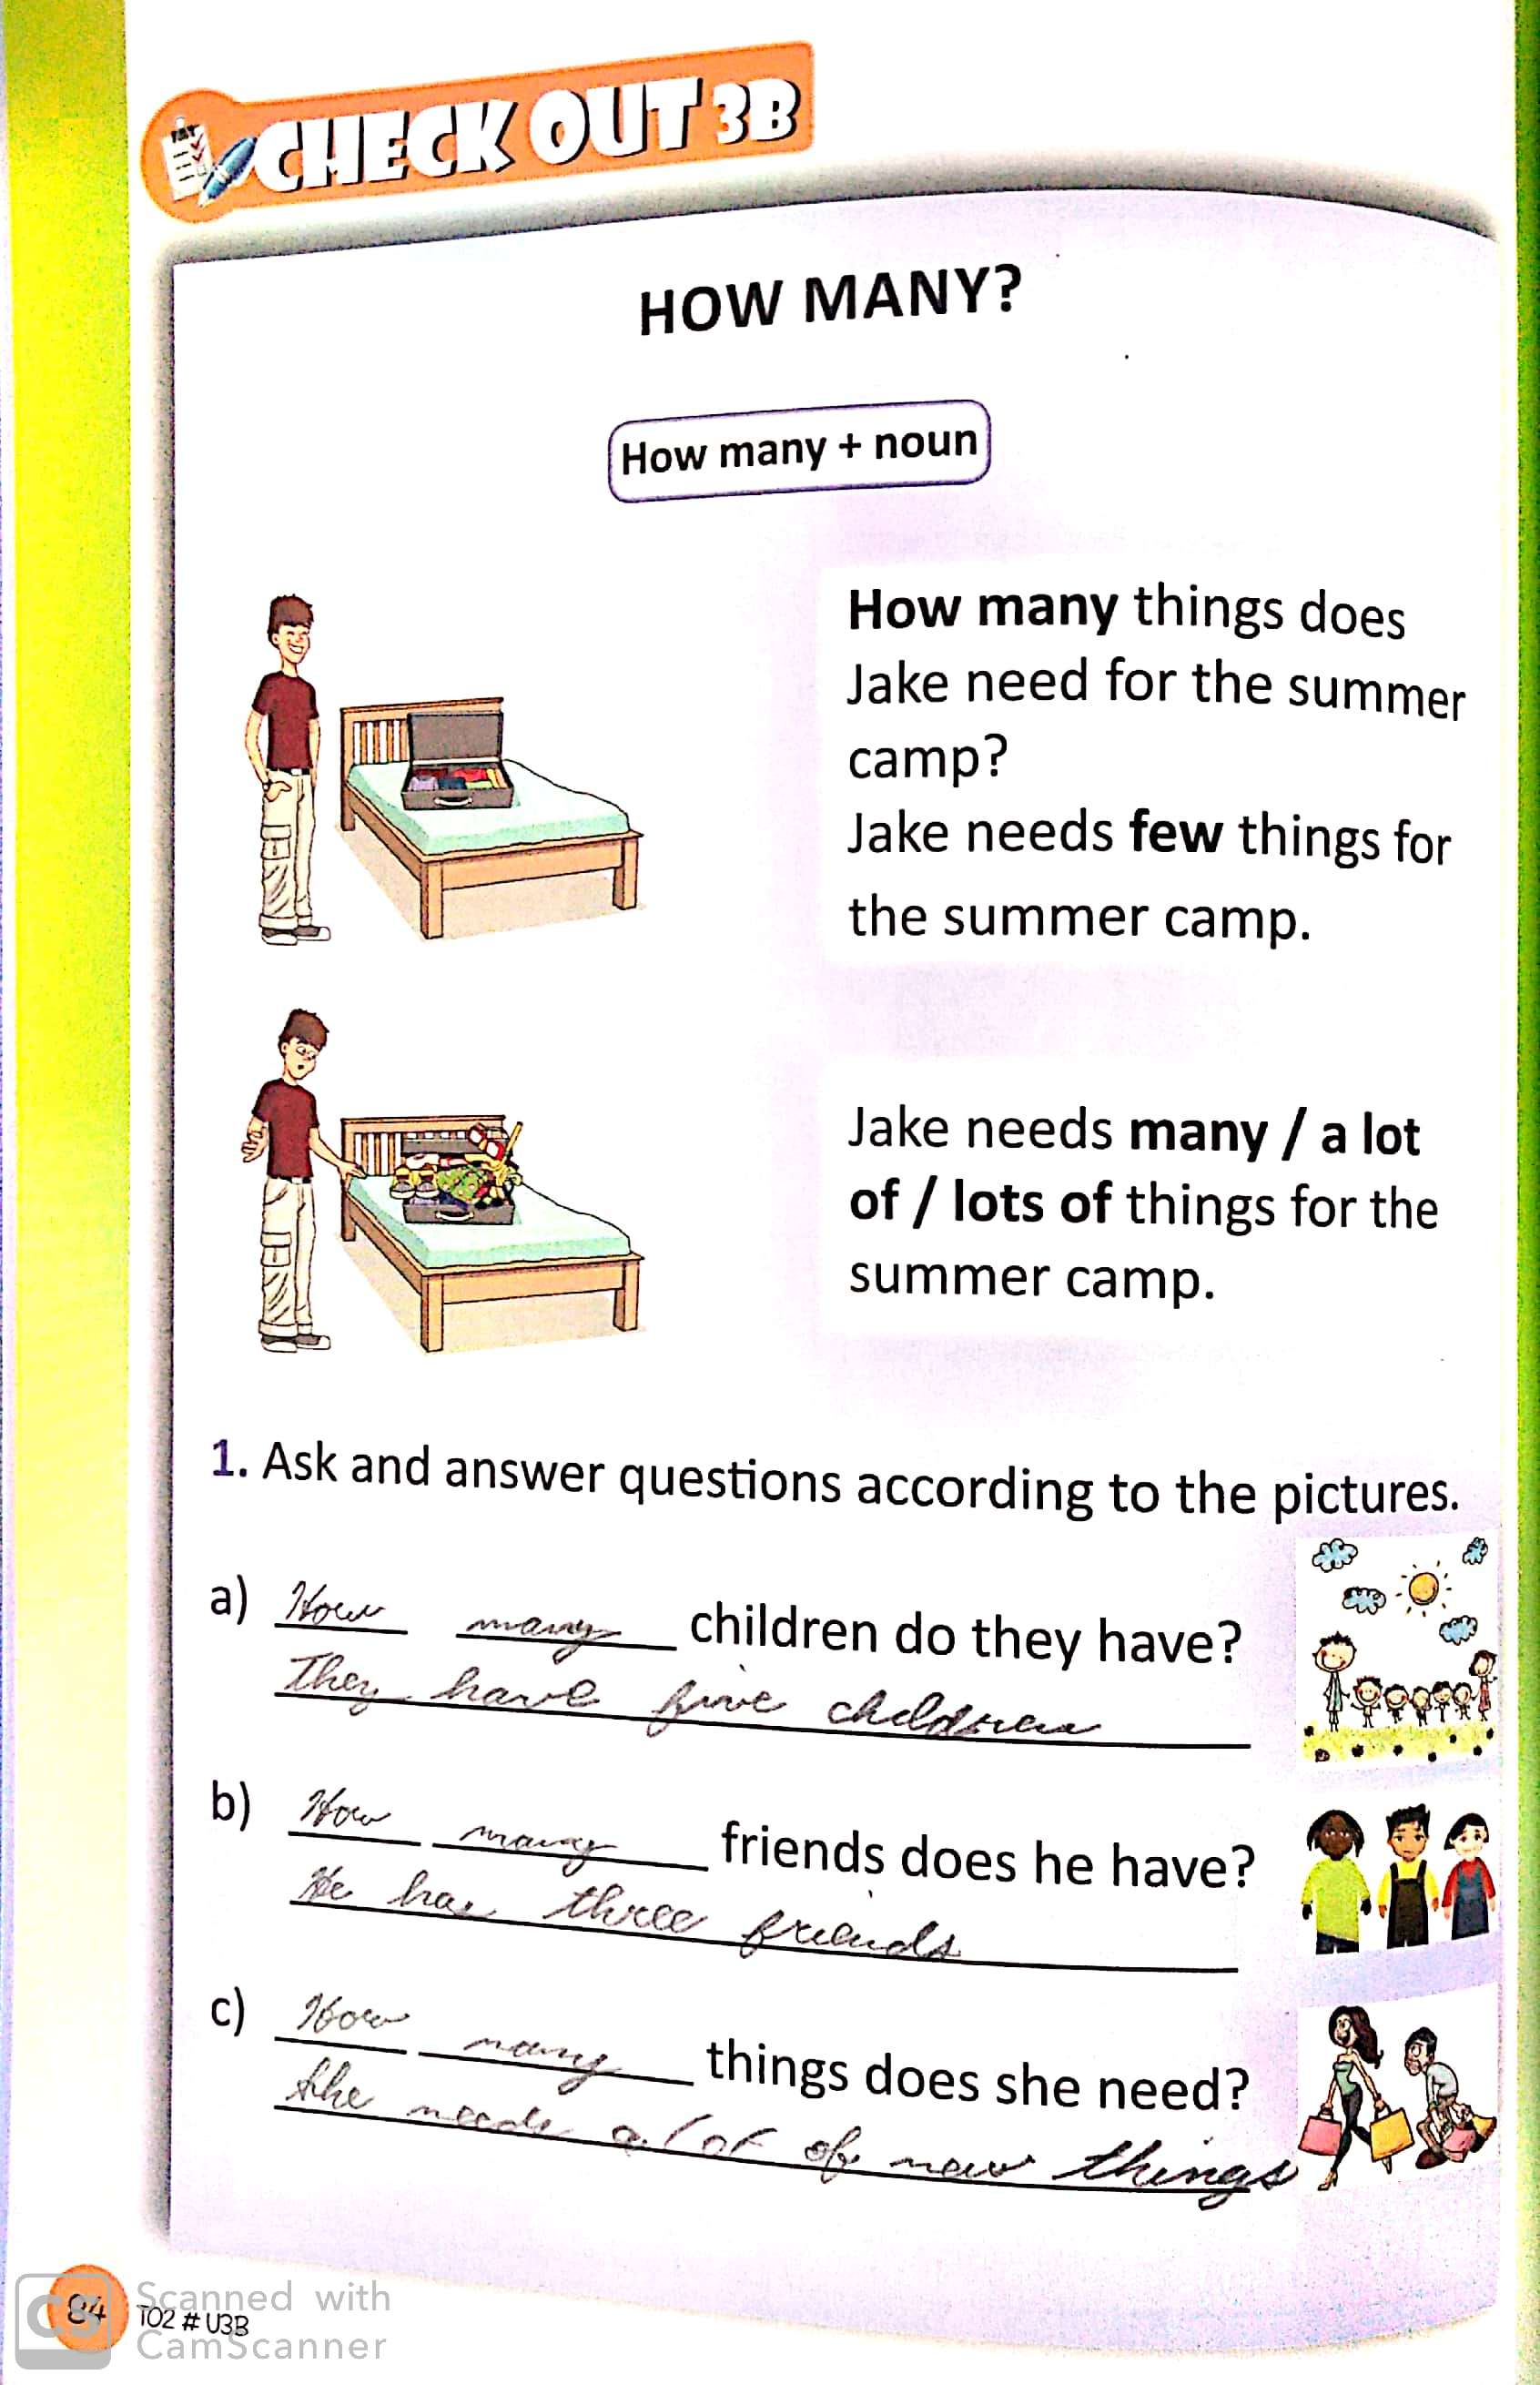 CHECK OUT 3B
HOW MANY?
How many + noun
How many things does
Jake need for the summer
camp?
Jake needs few things for
the summer camp.
Jake needs many / a lot
of / lots of things for the
summer camp.
1. Ask and answer questions according to the pictures.
a) How many children do they have?
They have five children
b) How many friends does he have?
He has three friends
c) How many things does she need?
She needs a lot of new things
84 TO2 # U3B
CS Scanned with
CamScanner